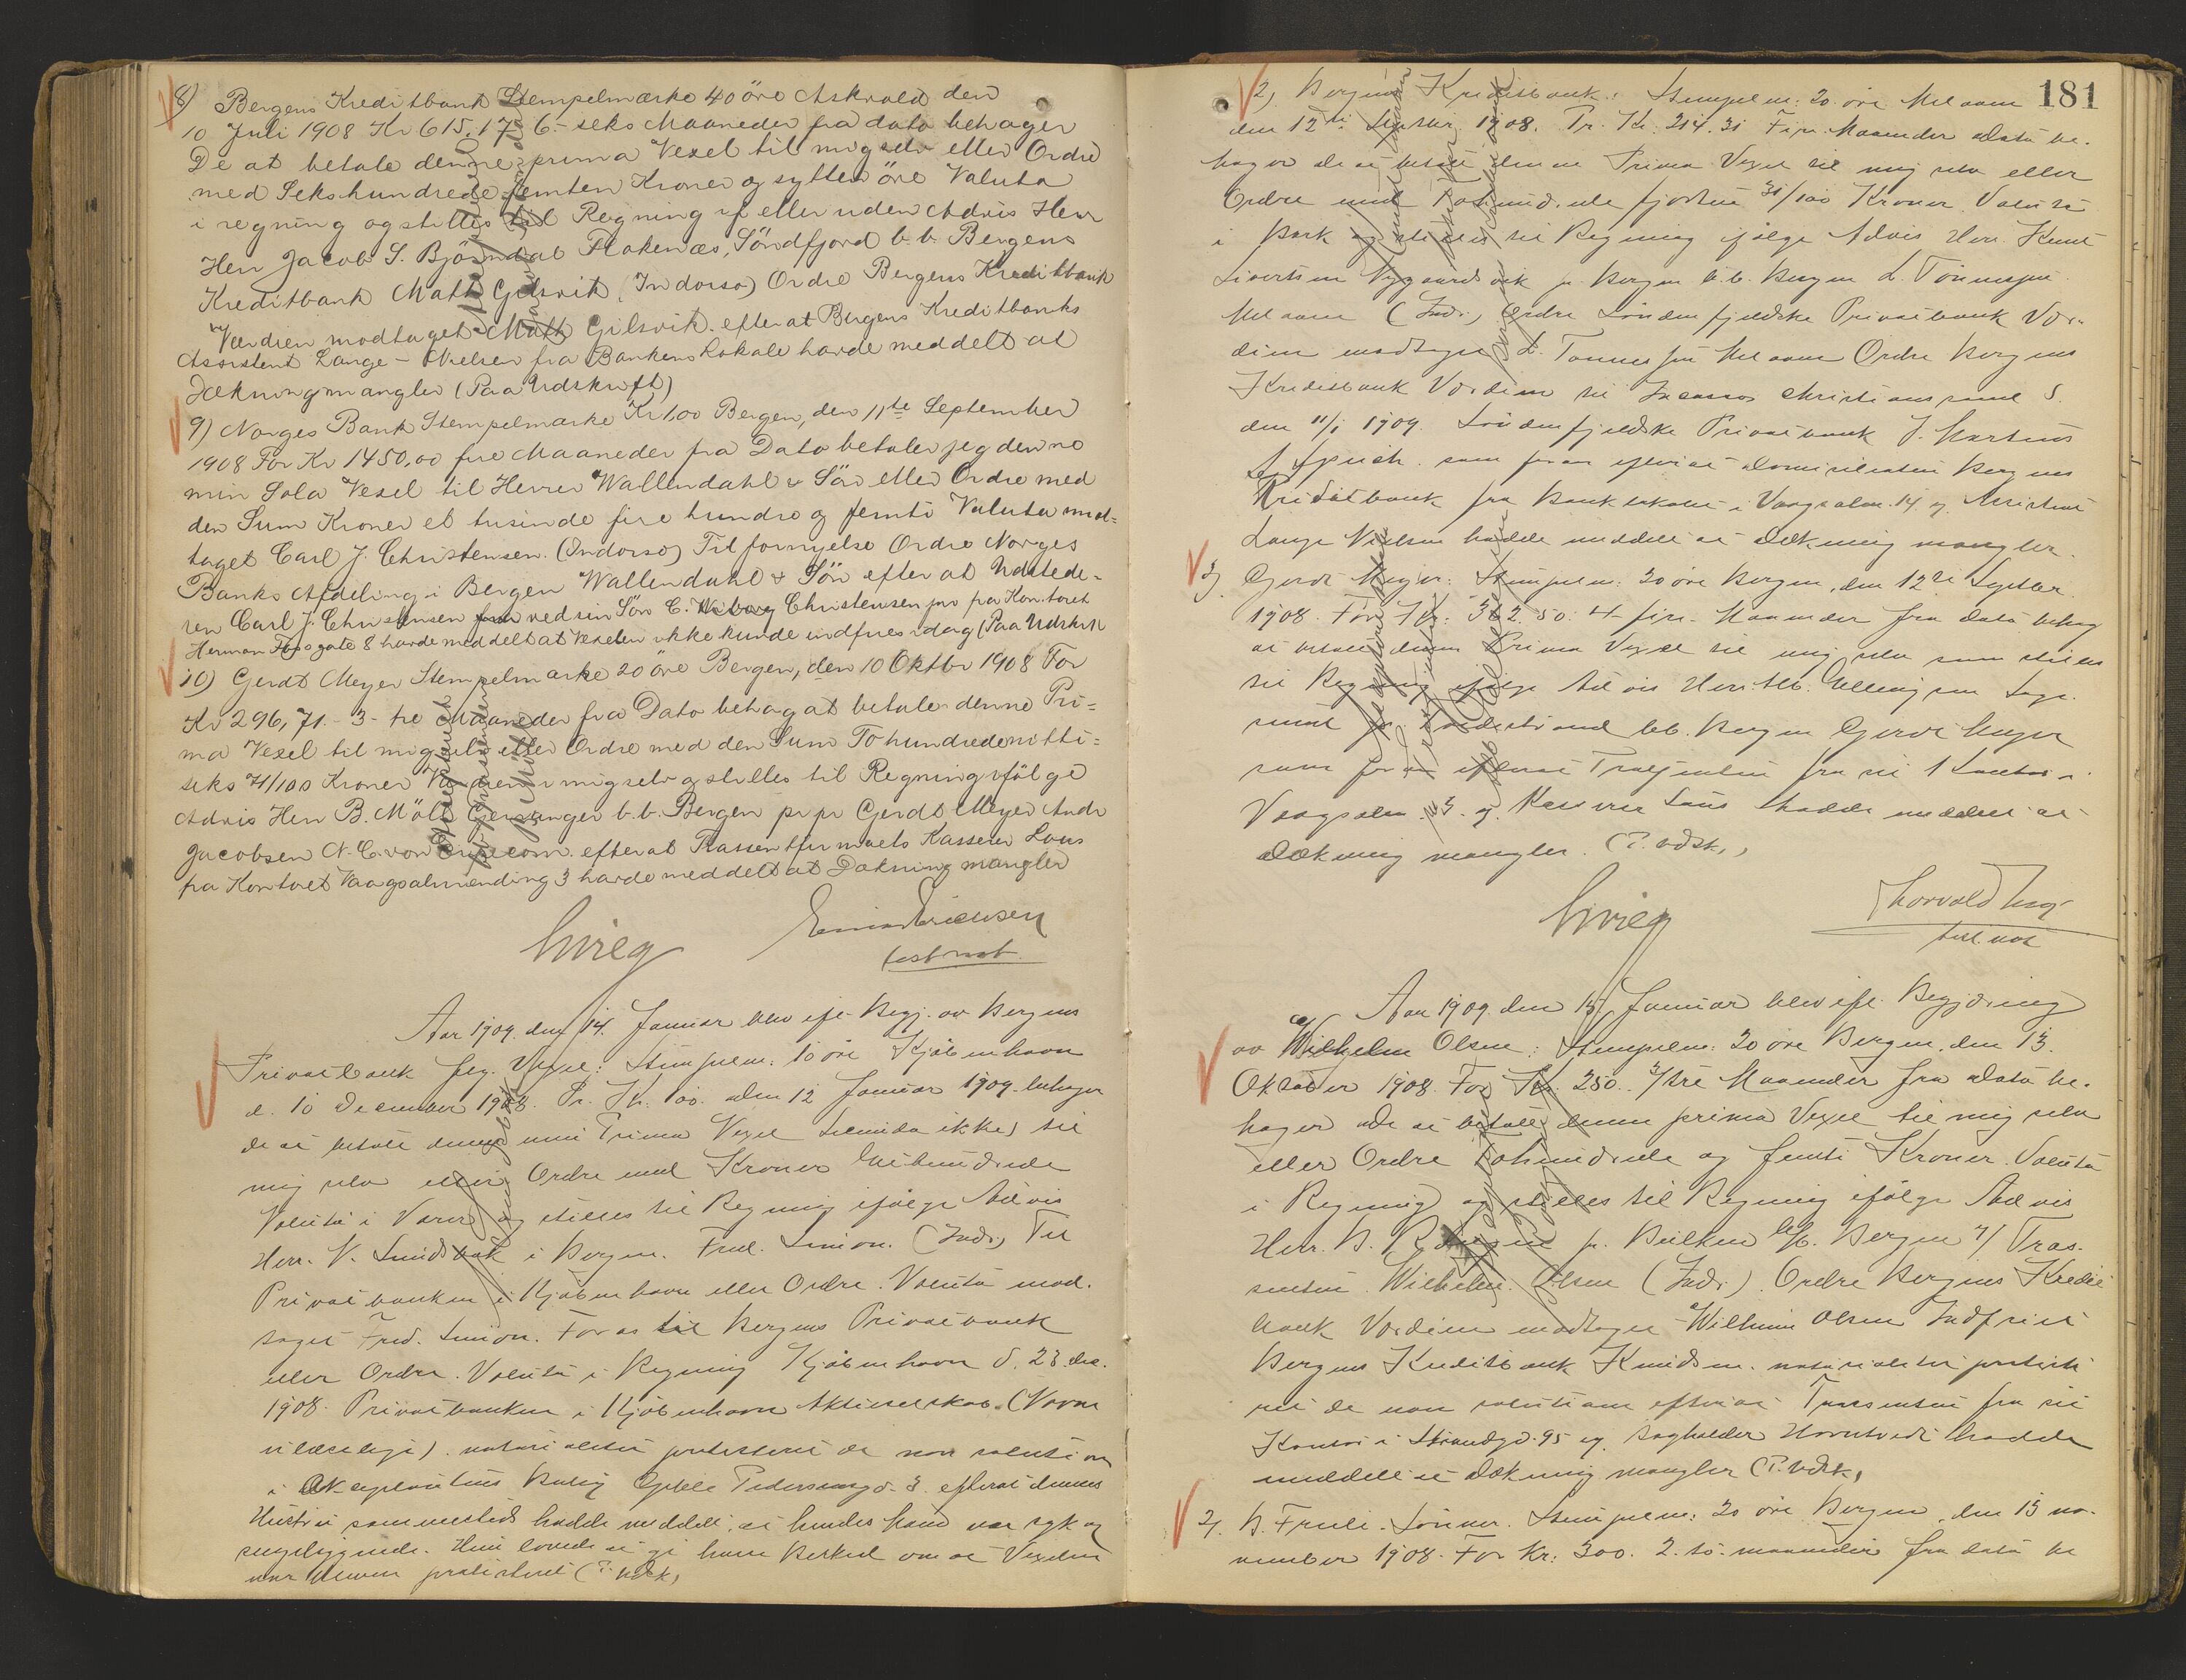 8) Bergens Kreditbank Stempelmærke 40 öre Askvold den
10 Juli 1908 Kr 615,17 6 - seks Maaneder fra dato behager
De at betale denne prima Vexel til mig selv eller Ordre
med Sekshundrede femten Kroner og sytten öre Valuta
i regning og stilles til Regning if eller uden Advis Herr
Herr Jacob S. Björndal Flokenæs, Söndfjord b. b. Bergens
Kreditbank Math Gilsvik (Indorso) Ordre Bergens Kreditbank
Værdien modtaget Math Gilsvik. efter at Bergens Kreditbanks
Assistent Lange-Nielsen fra Bankens Lokale havde meddelt at
Dækning mangler (Paa Udskrift)
9) Norges Bank Stempelmærke Kr 1,00 Bergen, den 11te September
1908 For Kr 1450,00 fire Maaneder fra Dato betaler jeg denne
min Sola Vexel til Herrer Wallendahl & Sön eller Ordre med
den Sum Kroner et tusinde fire hundre og femti Valuta mod=
taget Carl J. Christensen. (Indorso) Til fornyelse Ordre Norges
Banks Afdeling i Bergen Wallendahl & Sön efter at Udstede=
ren Carl J. Christensen ved sin Sön C. Christensen jnr fra Kontoret
Herman Fossgate 8 havde meddelt at Vexelen ikke kunde indfries idag (Paa Udskrift
10) Gerdt Meyer Stempelmærke 20 öre Bergen, den 10 Oktbr 1908 For
Kr 296,71. - 3 - tre Maaneder fra Dato behag at betale denne Pri=
ma Vexel til mig selv eller Ordre med den Sum To hundrede nitti=
seks 71/100 Kroner Værdien i mig selv og stilles til Regning ifölge
Advis Herr B. Möll Gjerninger b. b. Bergen pr pr Gerdt Meyer Andr
Jacobsen N. C. von efter at Trassentfirmaets Kasserer Lous
fra Kontoret Vaagsalmending 3 havde meddelt at Dækning mangler
test not
Aar 1909 den 14. Januar blev efl. Begj. av Bergens
Privatbank flg. Vexel: Stempelm: 10 öre Kjöbenhavn
d. 10 December 1908. Pr. Kr. 100. den 12 Januar 1909. behager
de at betale denne min Prima Vexel (secunda ikke) til
mig selv eller Ordre med Kroner Ethundrede
Valuta i Varer og stilles til Regning ifölge Advis
Herr. V. Smidsbak i Bergen. Fred. Simon. (Inds.) Til
Privatbanken i Kjöbenhavn eller Ordre. Valuta mod.
taget Fred. Simon. For os til Bergens Privatbank
eller Ordre. Valuta i Regning Kjöbenhavn d. 23 dec.
1908. Privatbanken i Kjöbenhavn Aktieselskab. (Navne
ulæselige). notarialiter protesteret de non solution
i Akceptantens Bolig Gyldenpedersensgd. 3. efterat dennes
Hustru sammesteds hadde meddelt, at hendes mand var syk og
sengeliggende. Hun lovede at gi ham Besked om at Vexelen
var bleven protesteret (P. udsk)
181
2) Bergens Kreditbank: Stempelm: 20 öre Melaam
den 12te Septbr. 1908. Pr. Kr. 214.31 Fire Maaneder Dato be-
hager de at betale denne Prima Vexel til mig selv eller
Ordre med Tohundrede fjorten 31/100 Kroner. Valuta
i Bark og stilles til Regning ifölge Advis Herr. Knut
Sivertsen Nygaardsvik pr. Bergen b. b. Bergen L. Tönnesen
Melaam (Inds.) Ordre Söndenfjeldske Privatbank Vær-
dien modtaget L. Tönnesen Melaam Ordre Bergens
Kreditbank Værdien til Incasso Christianssand S.
den 11/1 1909. Söndenfjeldske Privatbank J. Martens
som foran efterat Domiciliaten Bergens
Kreditbank fra Banklokalet i Vaagsalm. 14 v. Assistent
Lange Nielsen hadde meddelt at Dækning mangler.
3) Gerdt Meyer: Stempelm: 20 öre Bergen, den 12te Septbr.
1908. For Kr: 362.50. 4- fire Maaneder fra Dato behag
at betale denne Prima Vexel til mig selv som stilles
til Regning ifölge Advis Herr.
b. b. Bergen Gerdt Meyer
som foran efterat Trassenten fra sit Kontor
Vaagsalm. 3. v. Kasserer Lous hadde meddelt at
Dækning mangler. (P. udsk.)
Thorvald
test. not
Aar 1909 den 15 Januar blev efl. Begjæring
av Wilhelm Olsen: Stempelm: 20 öre Bergen. den 13.
Oktober 1908. For Kr. 250.. 3/tre Maaneder fra Dato be-
hager De at betale denne prima Vexel til mig selv
eller Ordre Tohundrede og femti Kroner. Valuta
i Regning og stilles til Regning ifölge Advis
Herr. B. pr. b/b. Bergen Tras-
senten. Wilhelm Olsen (Inds.) Ordre Bergens Kredit
bank Værdien modtaget Wilhelm Olsen Indfriet
Bergens Kreditbank Knudsen. notarialiter proteste
ret de non solutione efterat Trassenten fra sit
Kontor i Strandgd. 95 v. Bogholder hadde
meddelt at Dækning mangler (P. udsk.)
2). B. Friele & Sönner. Stempelm: 20 öre Bergen, den 13 no-
vember 1908. For Kr: 300. 2. to. maaneder fra data be